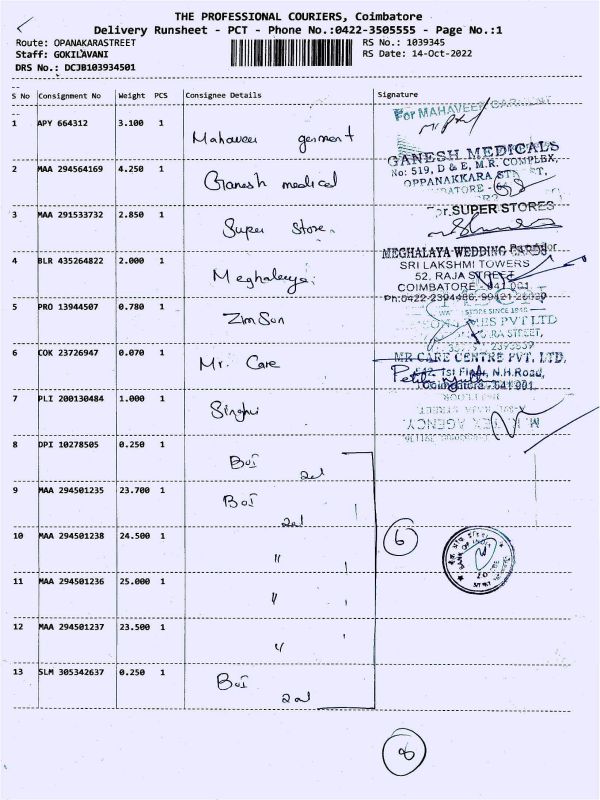 THE PROFESSIONAL COURIERS, Coimbatore
Delivery Runsheet - PCT - Phone No.:0422-3505555 - Page No.:1
Route: OPANAKARASTREET
RS No.: 1039345
Staff: GOKILAVANI
RS Date: 14-Oct-2022
DRS No.: DCJB103934501
S No Consignment No Weight PCS Consignee Details Signature
For MAHAVEER
1 APY 664312 3.100 1 Mahaveer garment
GANESH MEDICALS
No: 519, D & E, M.R. COMPLEX,
OPPANAKKARA
2 MAA 294564169 4.250 1 Ganesh medical
3 MAA 291533732 2.850 1 Super Store
SUPER STORES
4 BLR 435264822 2.000 1 Meghaleya
MEGHALAYA WEDDING CARDS
SRI LAKSHMI TOWERS
52, RAJA STREET
COIMBATORE - 641 001
Ph:0422-2394486,
5 PRO 13944507 0.780 1 ZimSon
STORE SINCE 1948
PVT LTD
STREET,
2393839
6 COK 23726947 0.070 1 Mr. Care
MR CARE CENTRE PVT. LTD,
1st Floor, N.H.Road,
Coimbatore-641 001.
7 PLI 200130484 1.000 1 Singhvi
TEX AGENCY
8 DPI 10278505 0.250 1 BOI
9 MAA 294501235 23.700 1 BOI
10 MAA 294501238 24.500 1 "
6
BANK OF
11 MAA 294501236 25.000 1 "
12 MAA 294501237 23.500 1 "
13 SLM 305342637 0.250 1 BOI